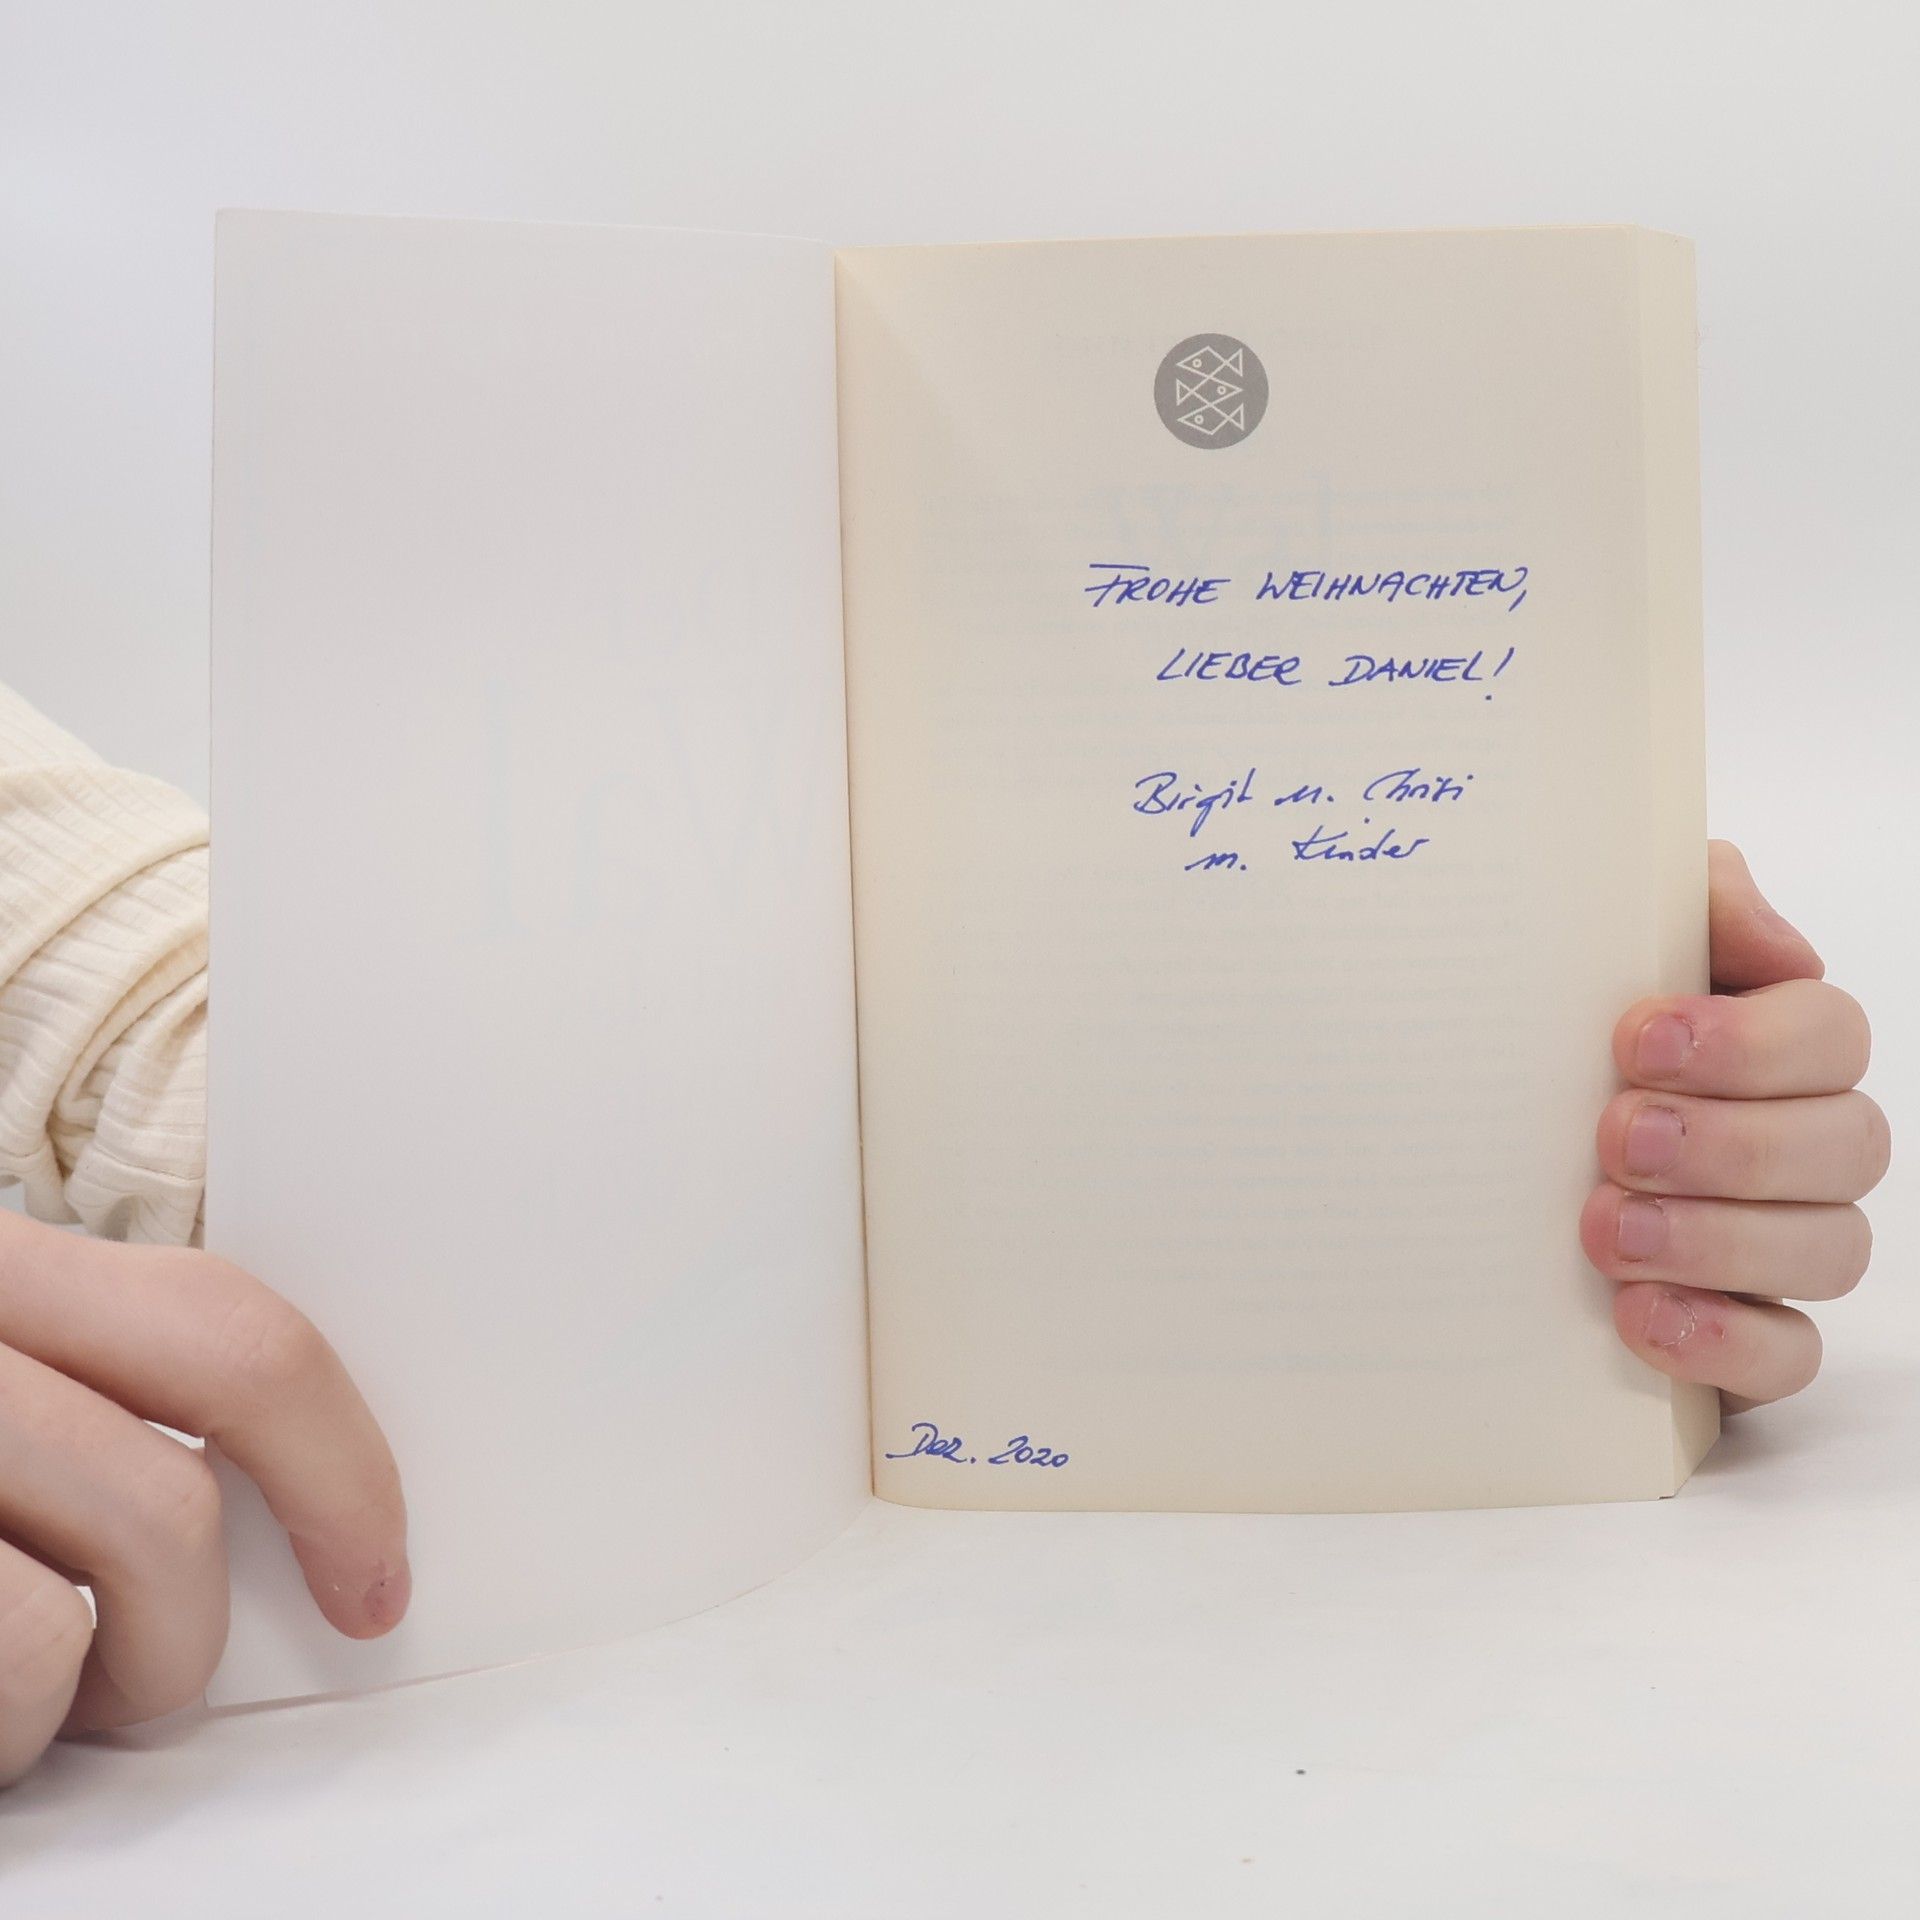 FROHE WEIHNACHTEN,
LIEBER DANIEL!
Birgit u. Christi
m. Kinder
Dez. 2020